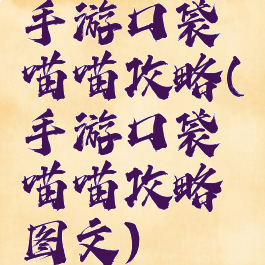 手游口袋
喵喵攻略(
手游口袋
喵喵攻略
图文)